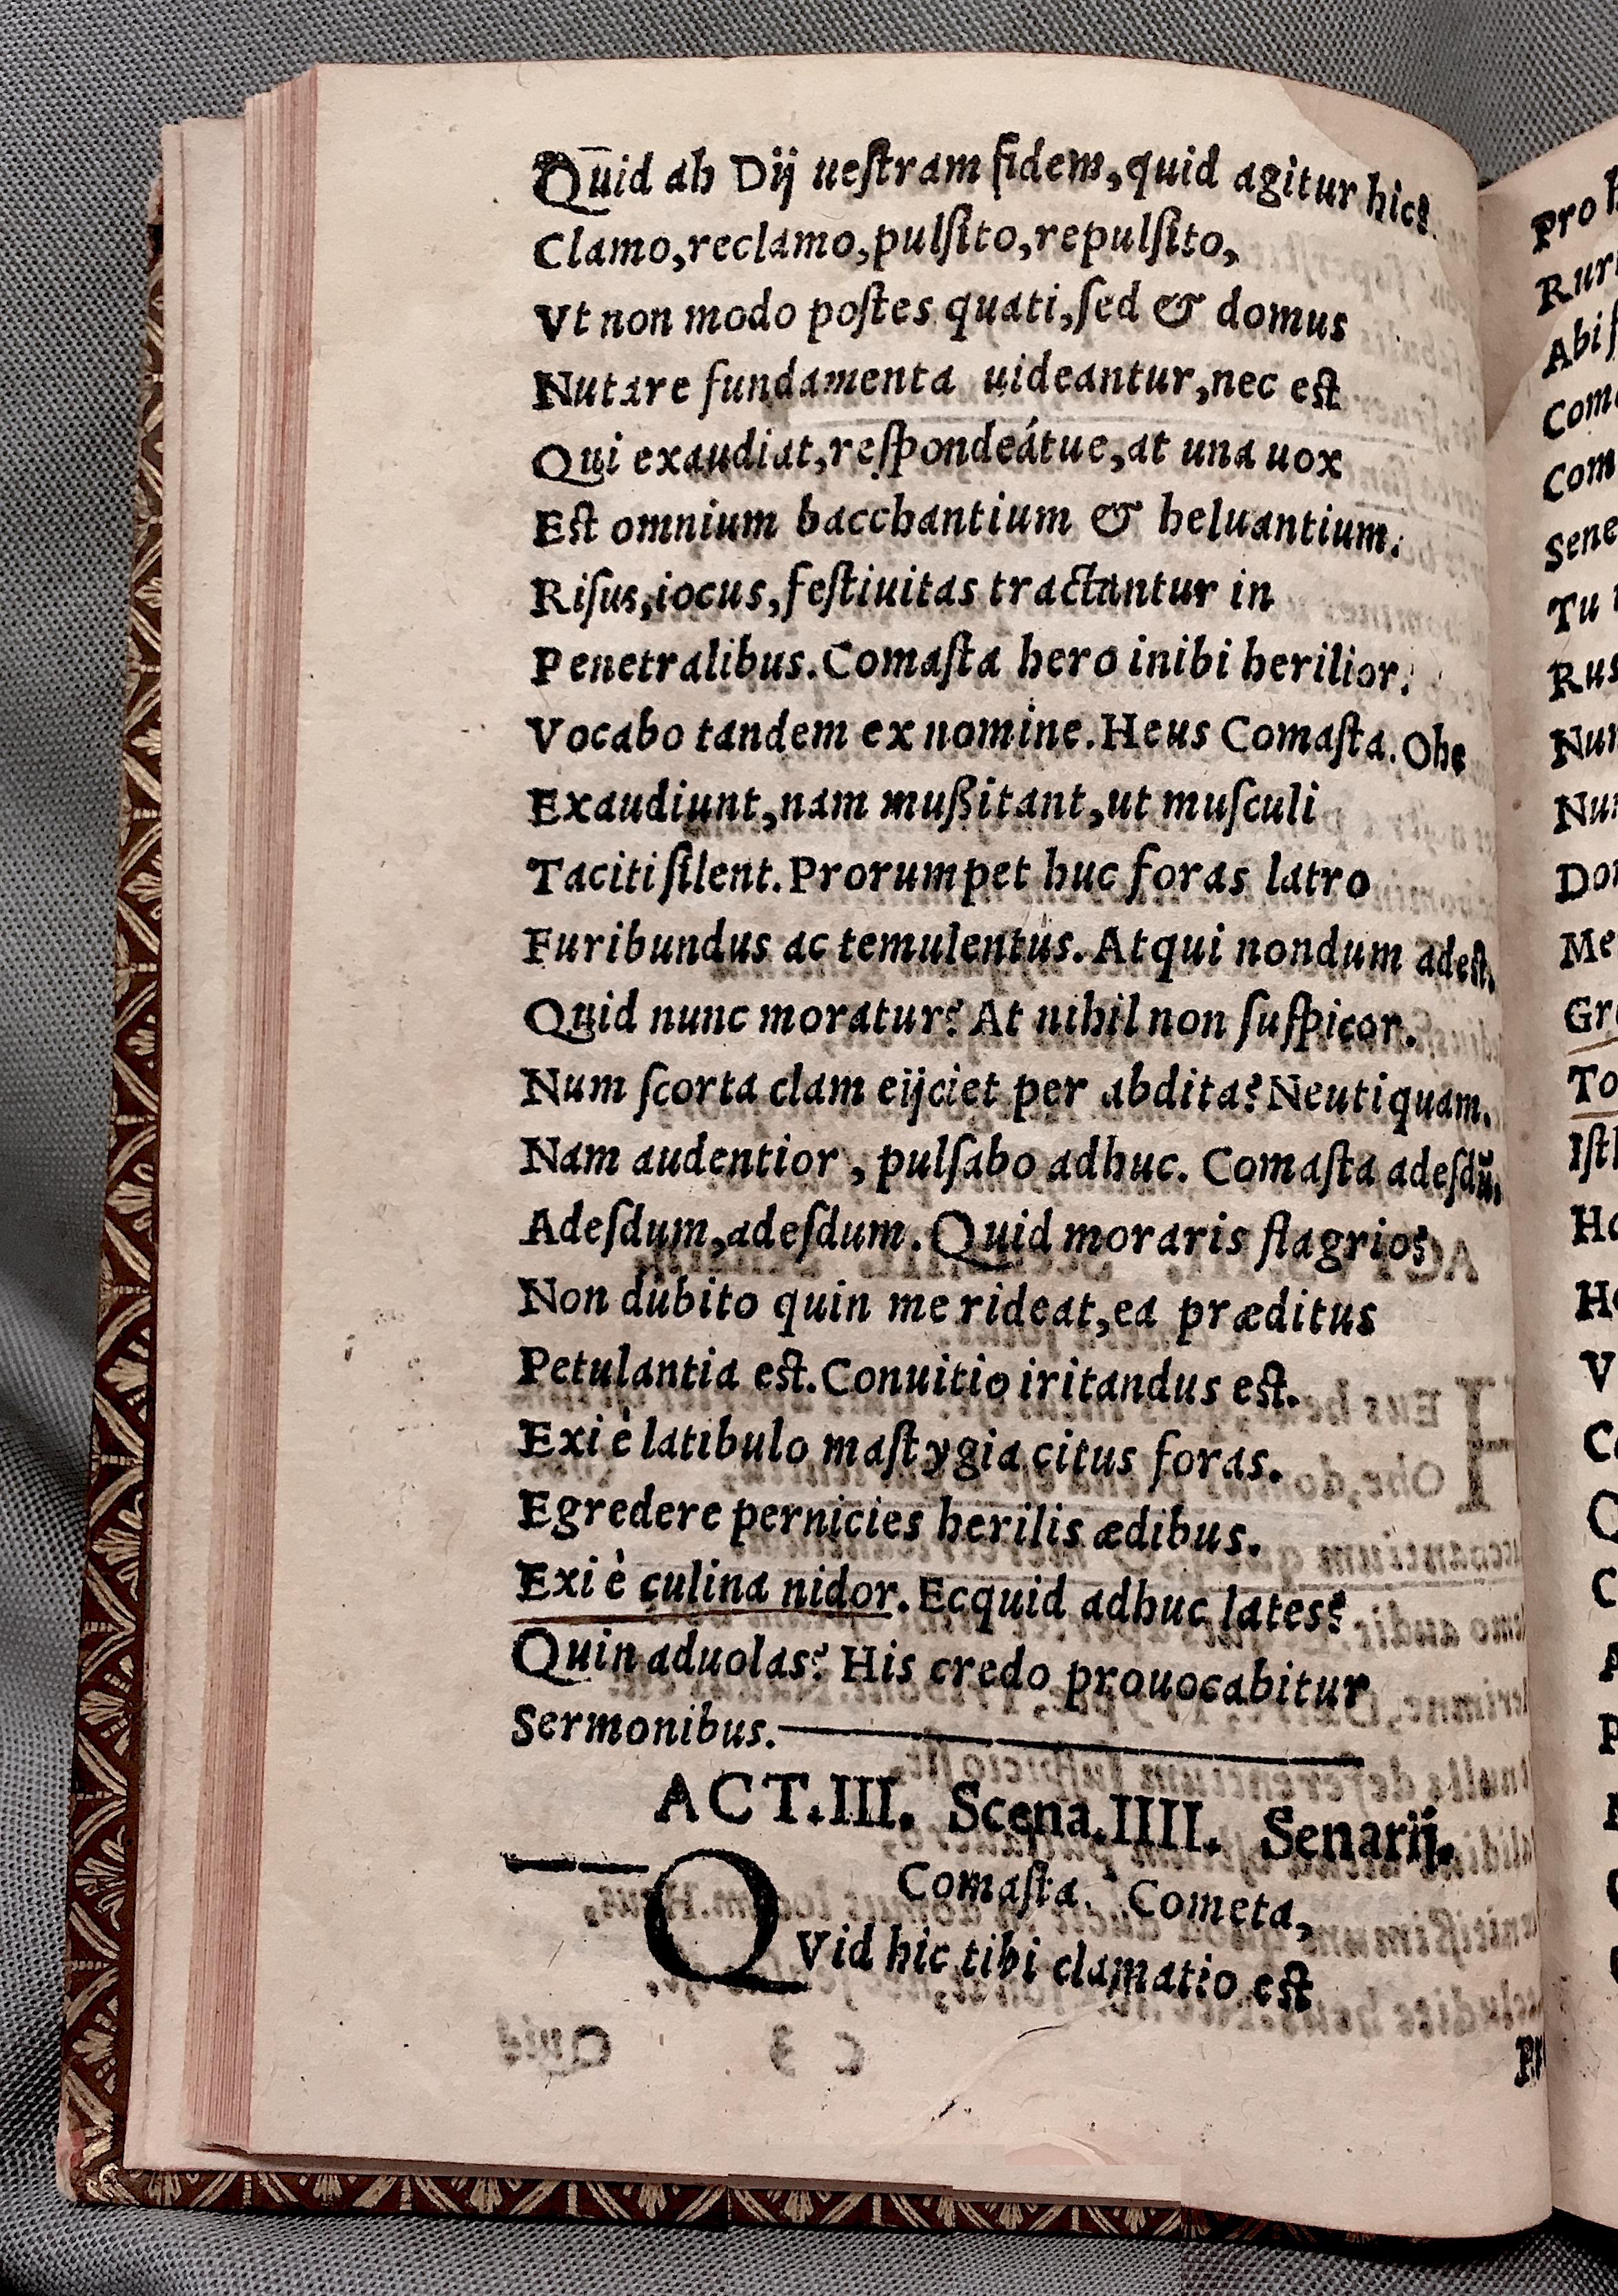 Quid ah Dij ueſtram fidem, quid agitur hic?
Clamo, reclamo, pulſito, repulſito,
Vt non modo poſtes quati, ſed & domus
Nutare fundamenta uideantur, nec eſt
Qui exaudiat, reſpondeátue, at una uox
Eſt omnium bacchantium & heluantium.
Riſus, iocus, feſtiuitas tractantur in
Penetralibus. Comaſta hero inibi herilior.
Vocabo tandem ex nomine. Heus Comaſta. Ohe
Exaudiunt, nam mußitant, ut muſculi
Taciti ſilent. Prorumpet huc foras latro
Furibundus ac temulentus. Atqui nondum adeſt.
Quid nunc moratur? At nihil non ſuſpicor.
Num ſcorta clam eijciet per abdita? Neutiquam.
Nam audentior, pulſabo adhuc. Comaſta adeſdū.
Adeſdum, adeſdum. Quid moraris flagrio?
Non dubito quin me rideat, ea præditus
Petulantia eſt. Conuitio iritandus eſt.
Exi è latibulo maſtygia citus foras.
Egredere pernicies herilis ædibus.
Exi è culina nidor. Ecquid adhuc lates?
Quin aduolas? His credo prouocabitur
Sermonibus.
ACT. III. Scena. IIII. Senarij.
Comaſta. Cometa,
QVid hic tibi clamatio eſt
Pro
Abi
Tu